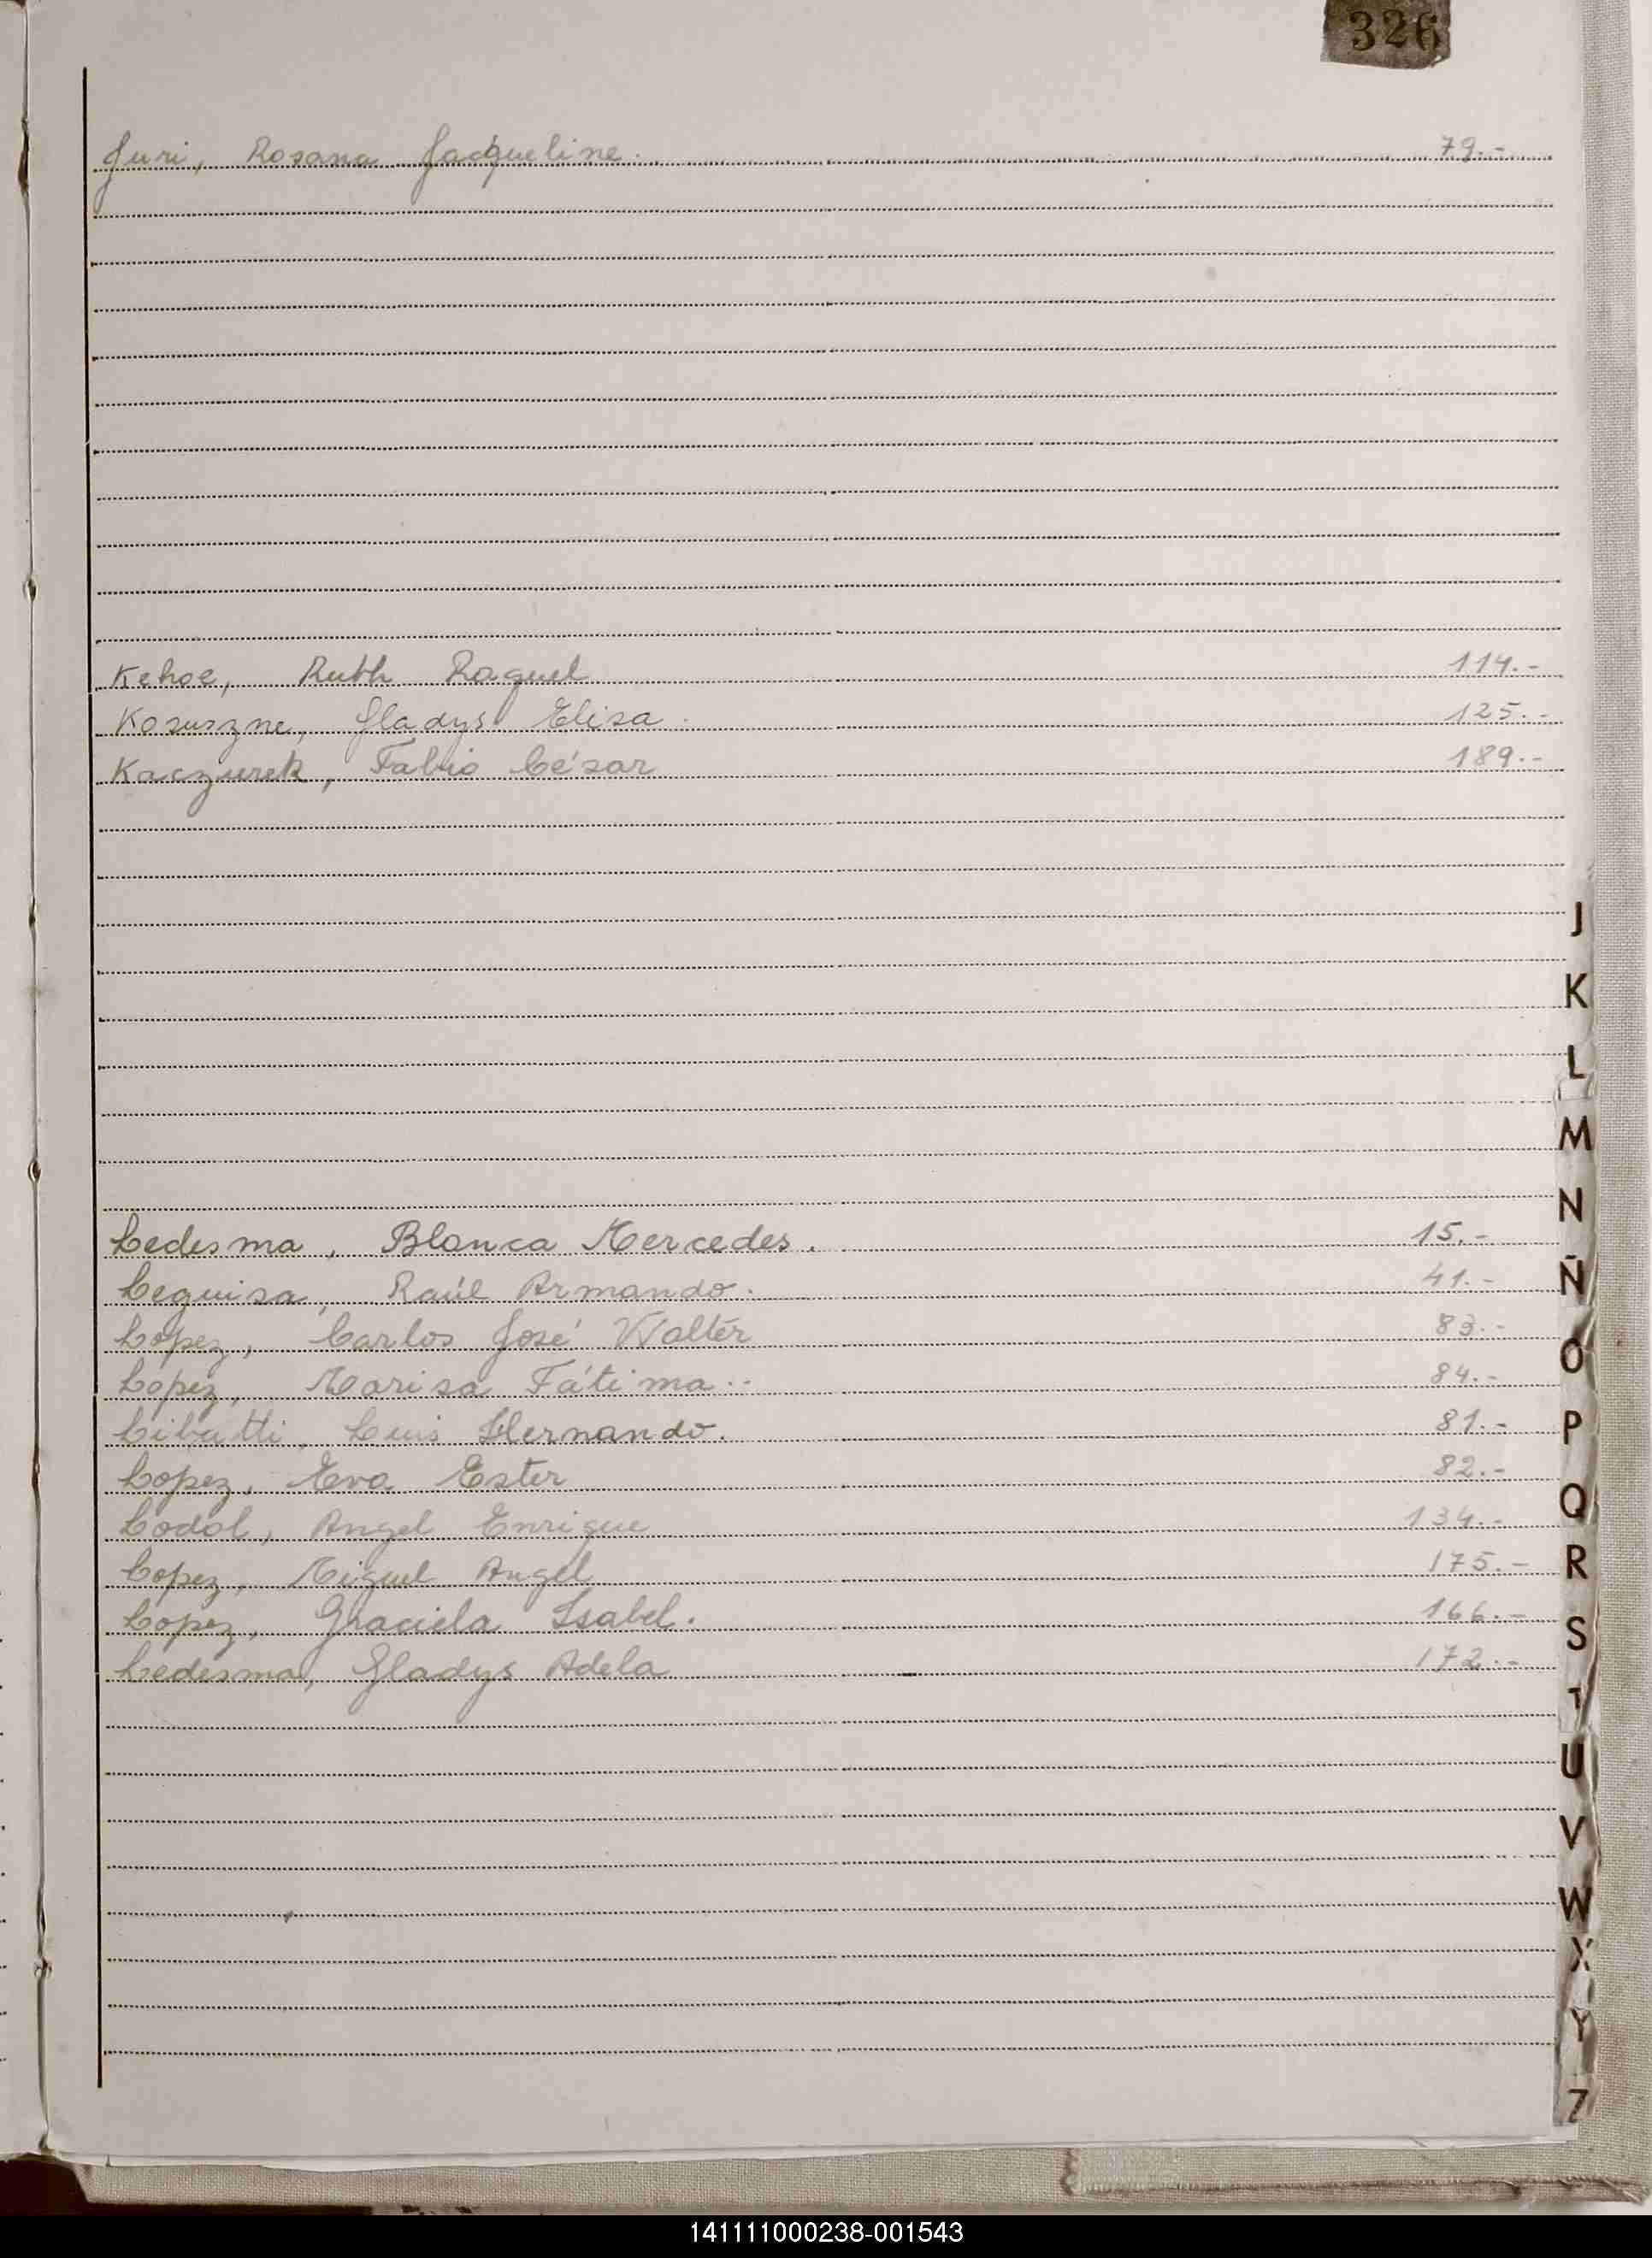 326
Juri, Rosana Jacqueline. 79.-
Kehoe, Ruth Raquel 114.-
Kosuszne, Gladys Elisa. 125.-
Kaczurek, Fabio César 189.-
Ledesma, Blanca Mercedes. 15.-
Leguisa, Raúl Armando. 41.-
Lopez, Carlos José Walter 83.-
Lopez, Marisa Fátima.. 84.-
Libatti, Luis Hernando. 81.-
Lopez, Eva Ester 82.-
Lodol, Angel Enrique 134.-
Lopez, Miguel Angel 175.-
Lopez, Graciela Isabel. 166.-
Ledesma, Gladys Adela 172.-
J
K
L
M
N
Ñ
O
P
Q
R
S
T
U
V
W
X
Y
Z
141111000238-001543